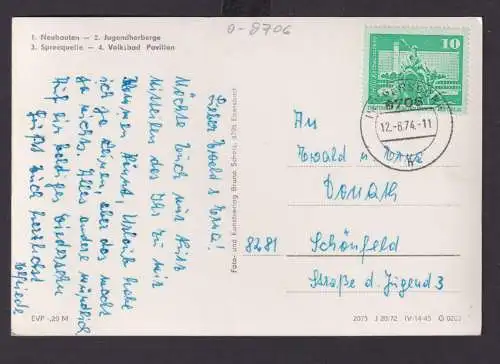 o-8706
1. Neubauten — 2. Jugendherberge
3. Spreequelle — 4. Volksbad Pavillon
Lieber Ewald u Erna!
Möchte Euch nur kurz
mitteilen das Ihr zu mir
kommen könnt, Urlaub habe
ich ja keinen, aber das macht
ja nichts. Alles andere mündlich
Auf ein baldiges Wiedersehn
Grüßt Euch herzlichst
Elfriede
Foto- und Kunstverlag Bruno Scholz, 8705 Ebersbach
10
8706
12.-8.74.-11
An
Ewald u Erna
Donath
8281 Schönfeld
Straße d. Jugend 3
EVP -,20 M
2075 J 20/72 IV-14-45 G 0203